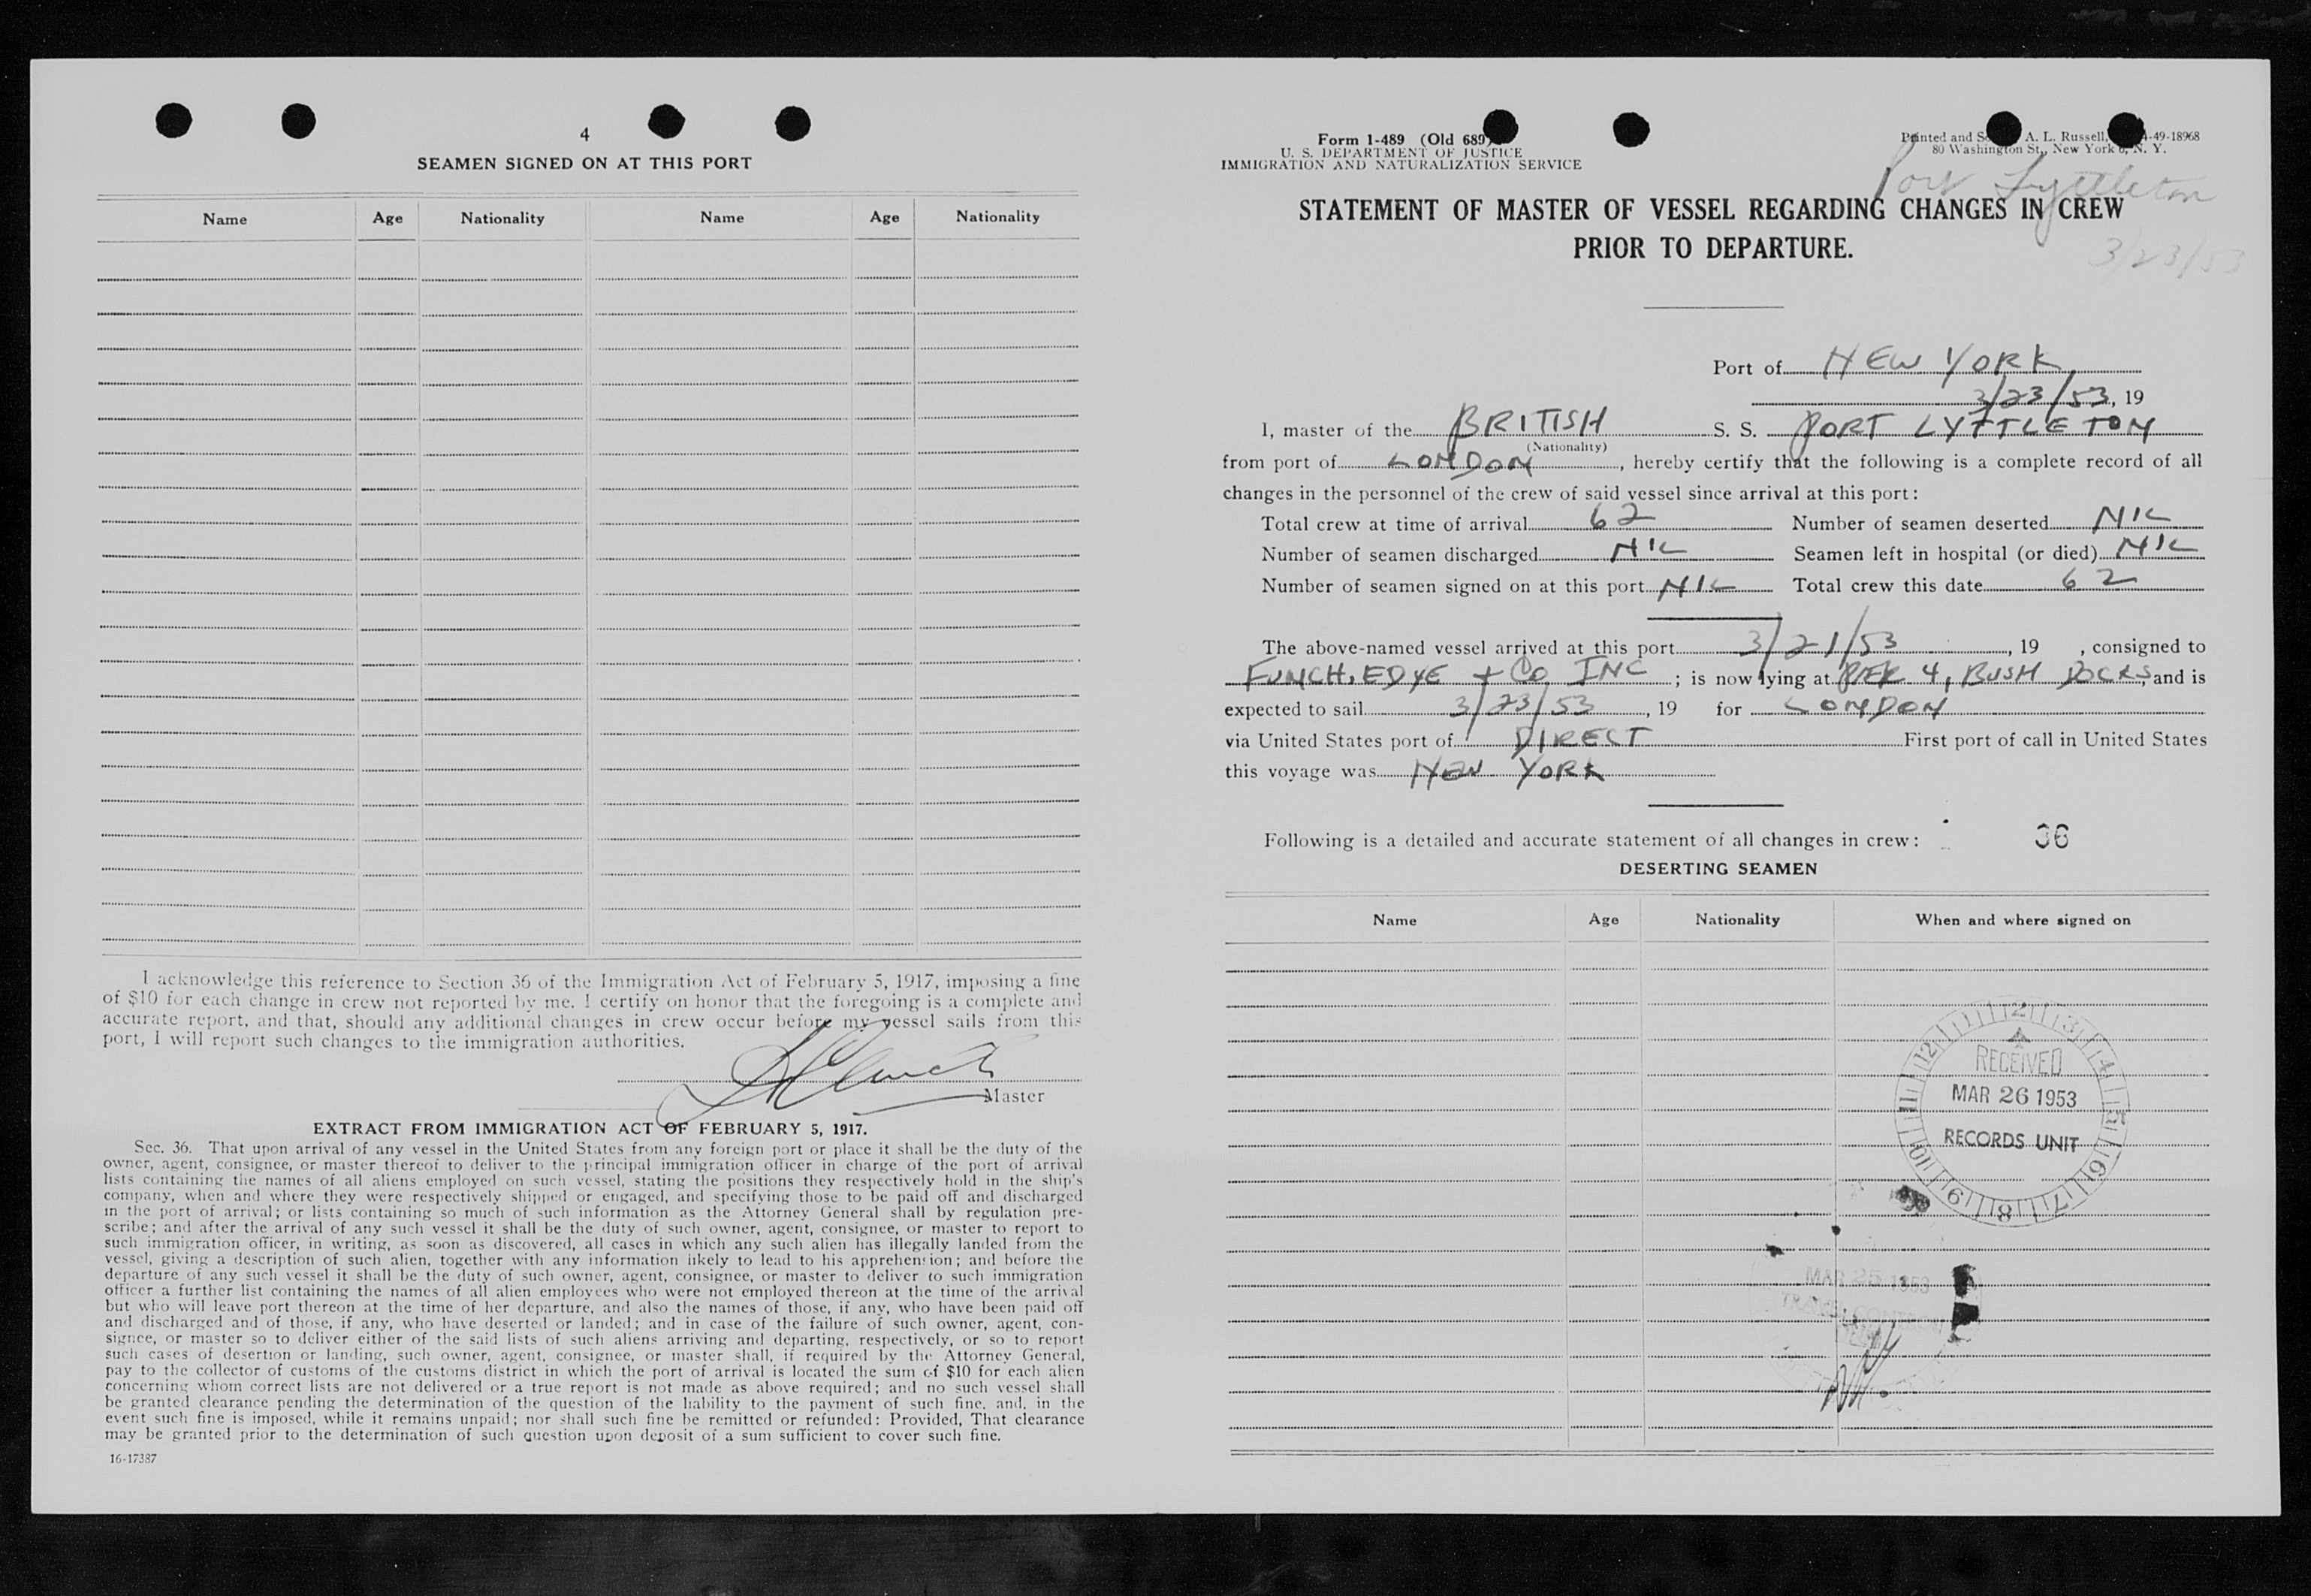 4
SEAMEN SIGNED ON AT THIS PORT
Name Age Nationality Name Age Nationality
I acknowledge this reference to Section 36 of the Immigration Act of February 5, 1917, imposing a fine
of $10 for each change in crew not reported by me. I certify on honor that the foregoing is a complete and
accurate report, and that, should any additional changes in crew occur before my vessel sails from this
port, I will report such changes to the immigration authorities.
Master
EXTRACT FROM IMMIGRATION ACT OF FEBRUARY 5, 1917.
Sec. 36. That upon arrival of any vessel in the United States from any foreign port or place it shall be the duty of the
owner, agent, consignee, or master thereof to deliver to the principal immigration officer in charge of the port of arrival
lists containing the names of all aliens employed on such vessel, stating the positions they respectively hold in the ship's
company, when and where they were respectively shipped or engaged, and specifying those to be paid off and discharged
in the port of arrival; or lists containing so much of such information as the Attorney General shall by regulation pre-
scribe; and after the arrival of any such vessel it shall be the duty of such owner, agent, consignee, or master to report to
such immigration officer, in writing, as soon as discovered, all cases in which any such alien has illegally landed from the
vessel, giving a description of such alien, together with any information likely to lead to his apprehension; and before the
departure of any such vessel it shall be the duty of such owner, agent, consignee, or master to deliver to such immigration
officer a further list containing the names of all alien employees who were not employed thereon at the time of the arrival
but who will leave port thereon at the time of her departure, and also the names of those, if any, who have been paid off
and discharged and of those, if any, who have deserted or landed; and in case of the failure of such owner, agent, con-
signee, or master so to deliver either of the said lists of such aliens arriving and departing, respectively, or so to report
such cases of desertion or landing, such owner, agent, consignee, or master shall, if required by the Attorney General,
pay to the collector of customs of the customs district in which the port of arrival is located the sum of $10 for each alien
concerning whom correct lists are not delivered or a true report is not made as above required; and no such vessel shall
be granted clearance pending the determination of the question of the liability to the payment of such fine, and, in the
event such fine is imposed, while it remains unpaid; nor shall such fine be remitted or refunded: Provided, That clearance
may be granted prior to the determination of such question upon deposit of a sum sufficient to cover such fine.
16-17387
Form 1-489 (Old 689)
U. S. DEPARTMENT OF JUSTICE
IMMIGRATION AND NATURALIZATION SERVICE
Printed and A. L. Russell, -49-18968
80 Washington St., New York 6, N. Y.
Port Lyttleton
3/23/53
STATEMENT OF MASTER OF VESSEL REGARDING CHANGES IN CREW
PRIOR TO DEPARTURE.
Port of NEW YORK
3/23/53, 19
I, master of the BRITISH S. S. PORT LYTTLETON
(Nationality)
from port of LONDON, hereby certify that the following is a complete record of all
changes in the personnel of the crew of said vessel since arrival at this port:
Total crew at time of arrival 62 Number of seamen deserted NIL
Number of seamen discharged NIL Seamen left in hospital (or died) NIL
Number of seamen signed on at this port NIL Total crew this date 62
The above-named vessel arrived at this port 3/21/53, 19 , consigned to
FUNCH, EDYE + Co INC ; is now lying at PIER 4, BUSH DOCKS, and is
expected to sail 3/23/53, 19 for LONDON
via United States port of DIRECT First port of call in United States
this voyage was NEW YORK
Following is a detailed and accurate statement of all changes in crew: 36
DESERTING SEAMEN
Name Age Nationality When and where signed on
12 1 2 3 4 5 6 7 8 9 10 11
RECEIVED
MAR 26 1953
RECORDS UNIT
MAR 25 1953